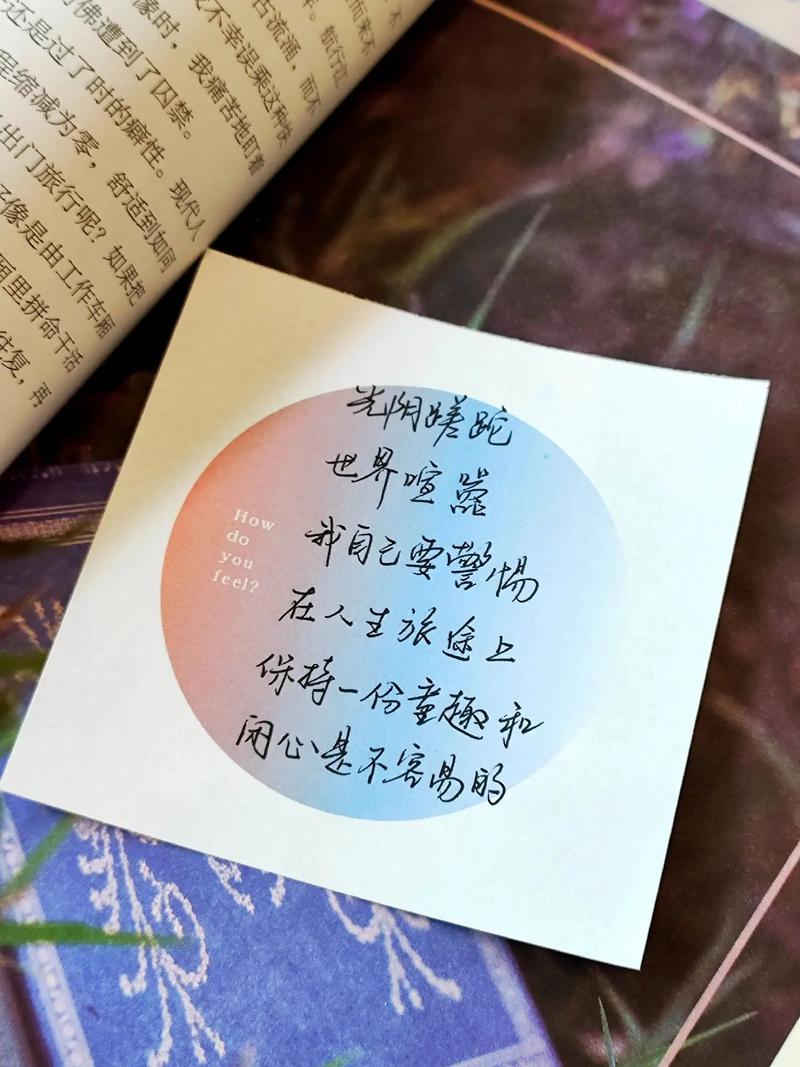 而来不
。航行江
古流涌，而不
不幸误乘这种快
像时，我痛苦地盯着
佛遭到了囚禁。
还是过了时的癖性。现代人
程缩减为零，舒适到如同
出门旅行呢？如果把
像是由工作车厢
里拼命干活
往复，再
光阴蹉跎
世界喧嚣
我自己要警惕
在人生旅途上
保持一份童趣和
闲心是不容易的
How
do
you
feel?